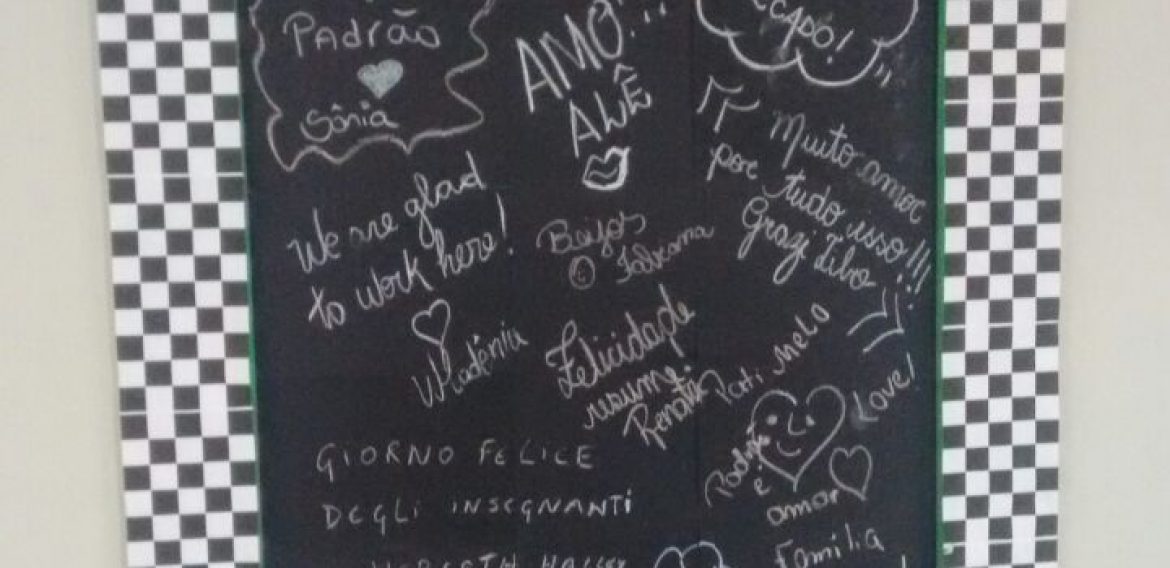 Padrão
Sônia
AMO!!
ALÊ
CADO!
Muito amor
por tudo isso!!!
Grazi
We are glad
to work here!
Wladênia
Beijos
Fabiana
Felicidade
resume.
Renata
Pati Melo
Love!
é
amor
Família
GIORNO FELICE
DEGLI INSEGNANTI